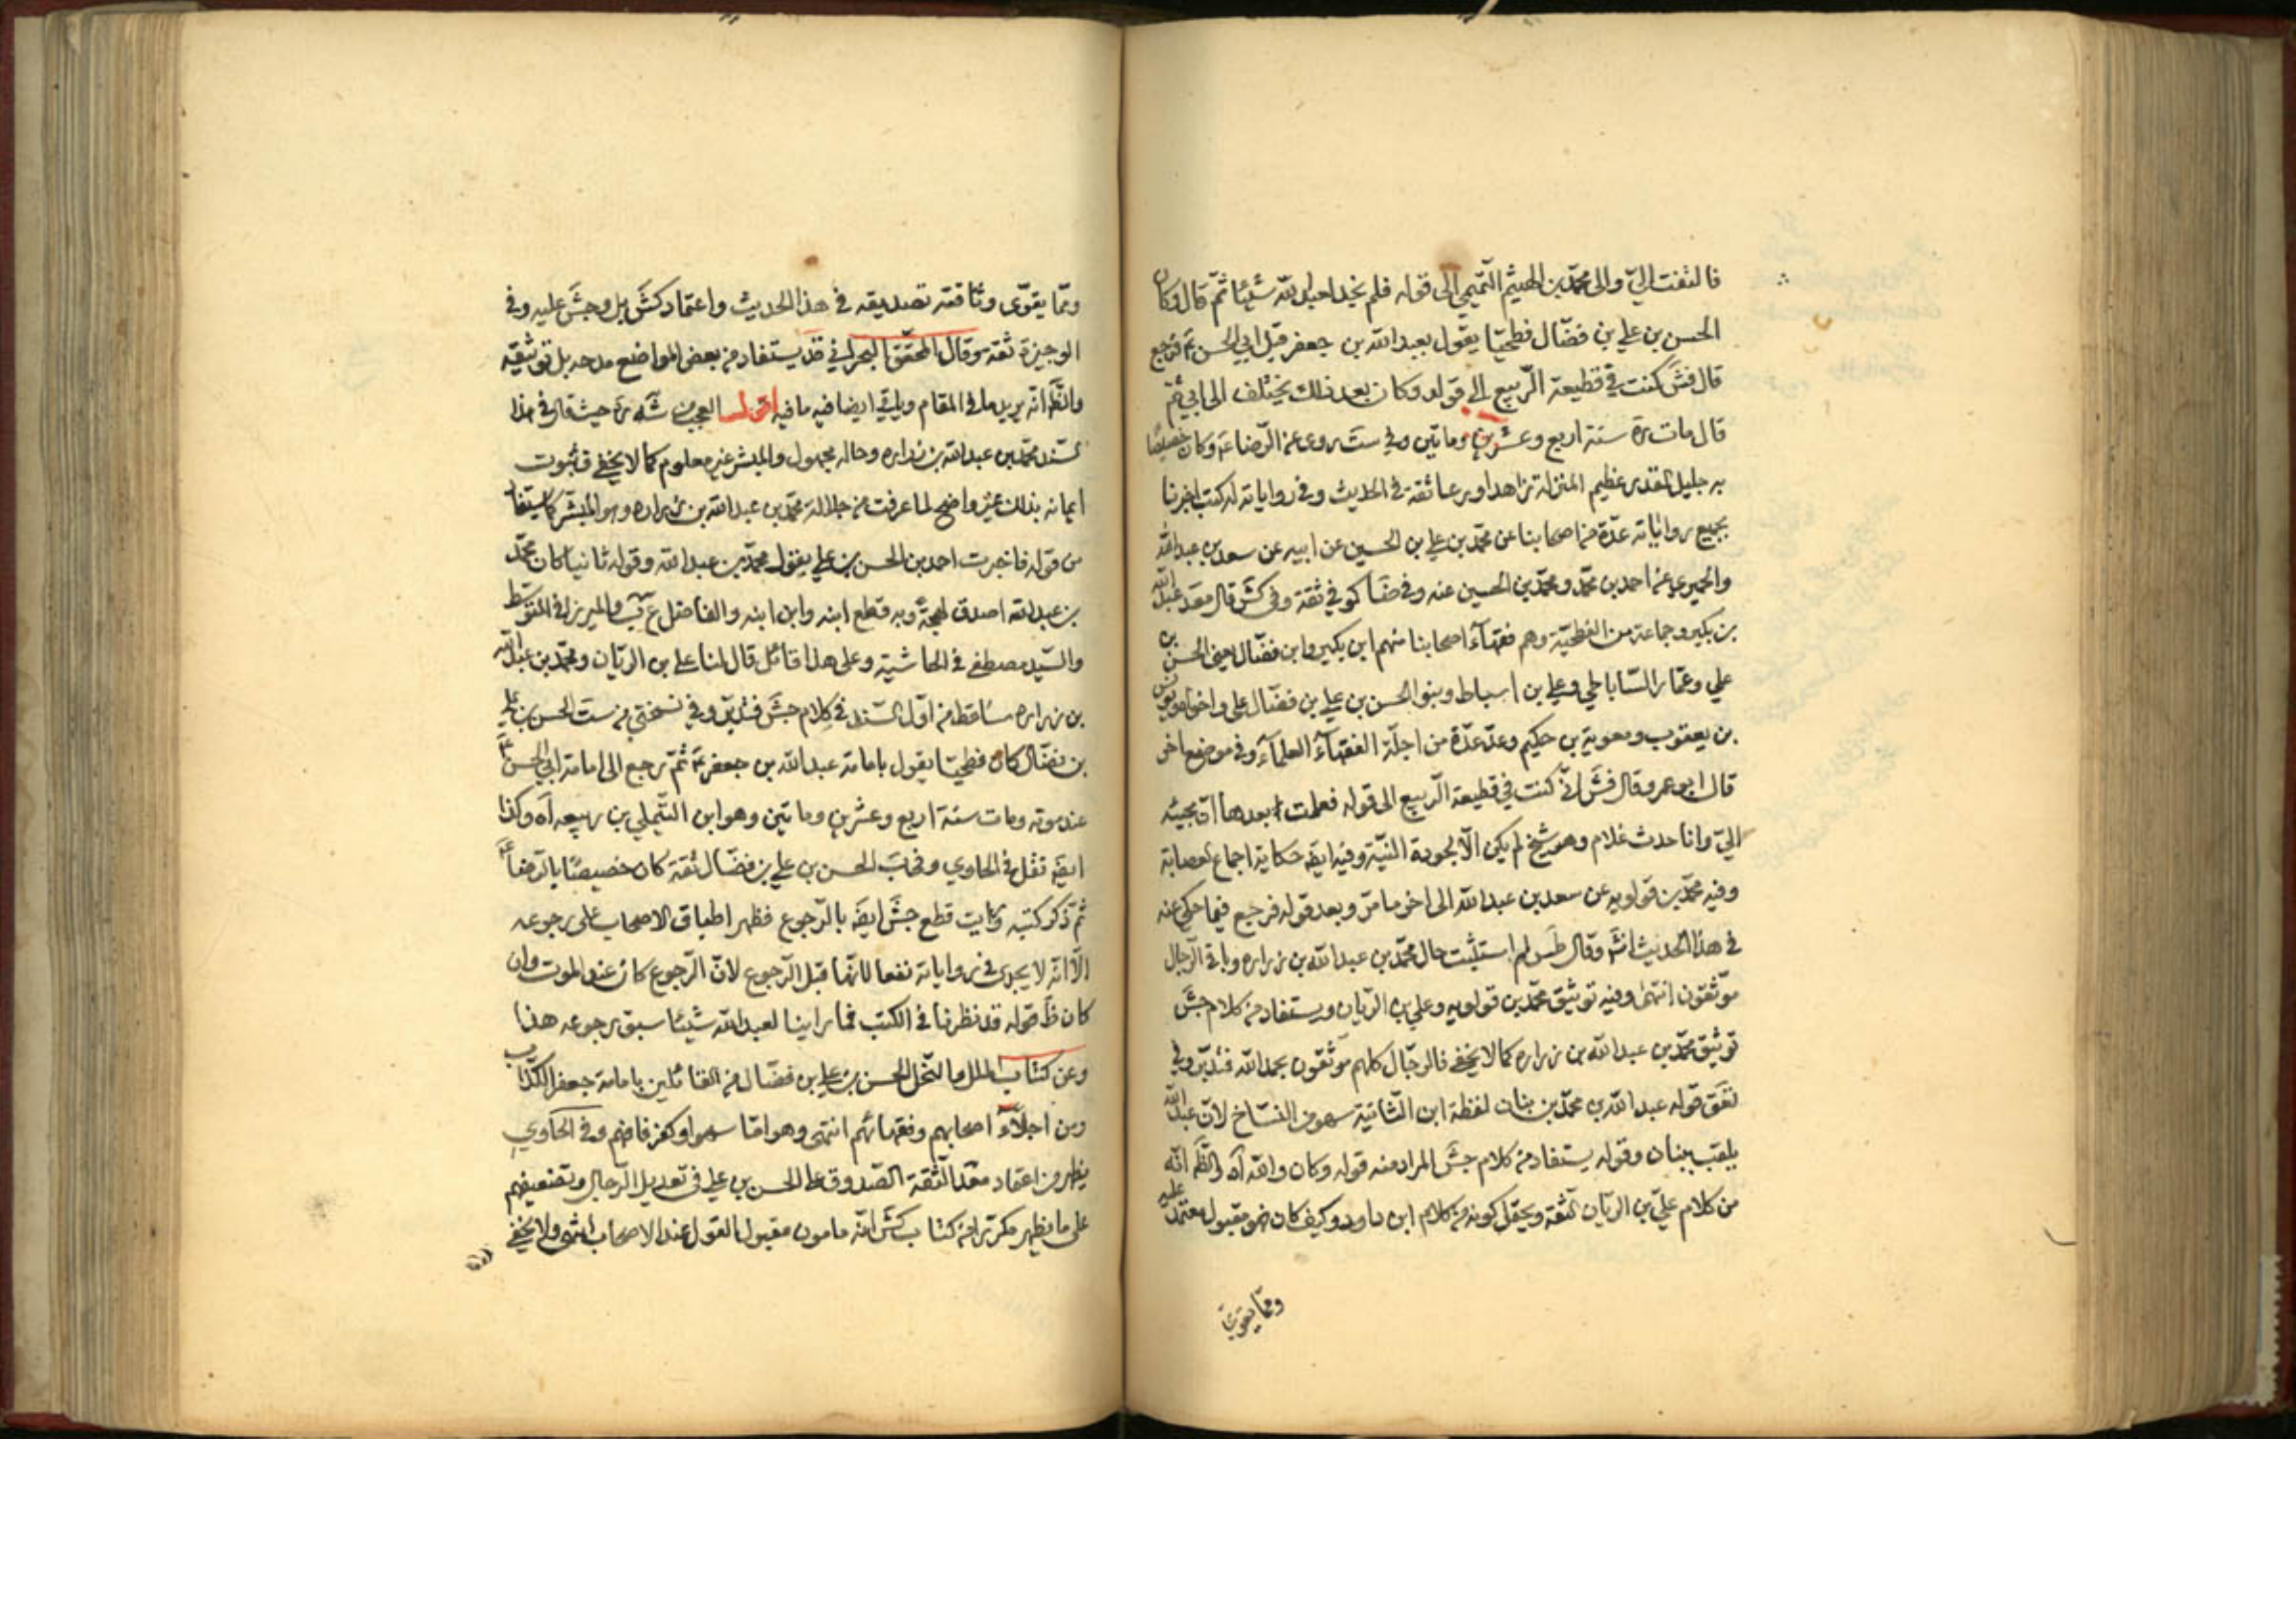 فالتفت اليّ والى محمّد بن الهيثم التّميمي الى قوله فلم نجد لعبد الله شيئا ثمّ قال وكان
الحسن بن علي بن فضّال فطحيّا يقول بعبد الله بن جعفر قبل ابي الحسن ع فرجع
قال فش كنت في قطيعة الرّبيع الى قوله وكان بعد ذلك يختلف الى ابي ثم
قال مات ره سنة اربع وعشرين ومأتين وفي ست روى عن الرّضا ع وكان خصيصًا
به جليل القدر عظيم المنزلة زاهدا ورعا ثقة في الحديث وفي رواياته له كتب اخبرنا
بجميع رواياته عدّة من اصحابنا عن محمّد بن علي بن الحسين عن ابيه عن سعد بن عبد الله
والحميري عن احمد بن محمّد ومحمّد بن الحسين عنه وفي ضا كوفي ثقة وفي كش قال معد عبد الله
بن بكير وجماعة من الفطحيّة وهم فقهاء اصحابنا منهم ابن بكير وابن فضّال يعني الحسن بن
علي وعمّار السّاباطي وعلي بن اسباط وبنو الحسن بن علي بن فضّال علي واخواه ويونس
بن يعقوب ومعوية بن حكيم وعدّ عدّة من اجلّة الفقهآء العلمآء وفي موضع اخر
قال ابو عمرو قال فش انّي كنت في قطيعة الرّبيع الى قوله فعلمت بعدها انّ مجيئه
اليّ وانا حدث غلام وهو شيخ لم يكن الّا لجودة النيّة وفيه ايضَ حكاية اجماع العصابة
وفيه محمّد بن قولويه عن سعد بن عبد الله الى اخر ما مرّ وبعد قوله فرجع فيما حكي عنه
في هذا الحديث انش وقال طس لم استثبت حال محمّد بن عبد الله بن زراره وباقي الرّجال
موثّقون انتهى وفيه توثيق محمّد بن قولويه وعلي بن الريّان ويستفاد من كلام جش
توثيق محمّد بن عبد الله بن زراره كما لا يخفى فالرجّال كلهم موثّقون بحمد الله فتدبّر وفي
نقق قوله عبد الله بن محمّد بن بنان لفظة ابن الثّانية سهو من النسّاخ لانّ عبد الله
يلقب ببنان وقوله يستفاد من كلام جش المراد منه قوله وكان والله اه والظّ انّه
من كلام عليّ بن الريّان الثقة ويحتمل كونه من كلام ابن داود وكيف كان فهو مقبول معتمد عليه
وممّا يقوّى
وممّا يقوّى وثاقته تصديقه في هذا الحديث واعتماد كش بل وجش عليه وفي
الوجيزة ثقة وقال المحقّق البحراني قد يستفاد من بعض المواضع مدحه بل توثيقه
والظّ انّه يريد ما في المقام ويأتي ايضا فيه ما فيه اقول العجب من شه ره حيث قال في هذا
السّند محمّد بن عبد الله بن زراره وحاله مجهول والمبشر غير معلوم كما لا يخفى فثبوت
ايمانه بذلك غير واضح لما عرفت من جلالة محمّد بن عبد الله بن زراره وهو المبشّر كما يستفاد
من قوله فاخبرت احمد بن الحسن بن علي بقول محمّد بن عبد الله وقوله ثانيا كان محمّد
بن عبد الله اصدق لهجة وبه قطع ابنه وابن ابنه والفاضل ع ب والميرزا في المتوسّط
والسّيد مصطفى في الحاشية وعلى هذا فائل قال لنا علي بن الريّان ومحمّد بن عبد الله
بن زراره ساقط من اوّل السّند في كلام جش فتدبّر وفي نسختي من ست الحسن بن علي
بن فضّال كان فطحيّا يقول بامامة عبد الله بن جعفر ع ثمّ رجع الى امامة ابي الحسن ع
عند موته ومات سنة اربع وعشرين ومأتين وهو ابن التّيملي بن ربيعه اه وكذا
ايضَ نقل في الحاوي وفي ب الحسن بن علي بن فضّال ثقة كان خصيصًا بالرّضا ع
ثمّ ذكر كتبه ورايت قطع جش ايضَ بالرّجوع فظهر اطباق الاصحاب على رجوعه
الّا انّه لا يجدي في رواياته نفعا لانّها قبل الرّجوع لانّ الرّجوع كان عند الموت وان
كان ظ قوله قد نظرنا في الكتب فما راينا لعبد الله شيئا سبق رجوعه هذا
وعن كتاب الملل والنّحل الحسن بن علي بن فضّال من القائلين بامامة جعفر الكذّاب
ومن اجلّاء اصحابهم وفقهائهم انتهى وهو امّا سهو او كفر فافهم وفي الحاوي
يظهر من اعتماد الثّقة الصّدوق على الحسن بن علي في تعديل الرّجال وتضعيفهم
على ما يظهر مكرّرا من كتاب كش انّه مامون مقبول القول عند الاصحاب انتهى ولا يخفى